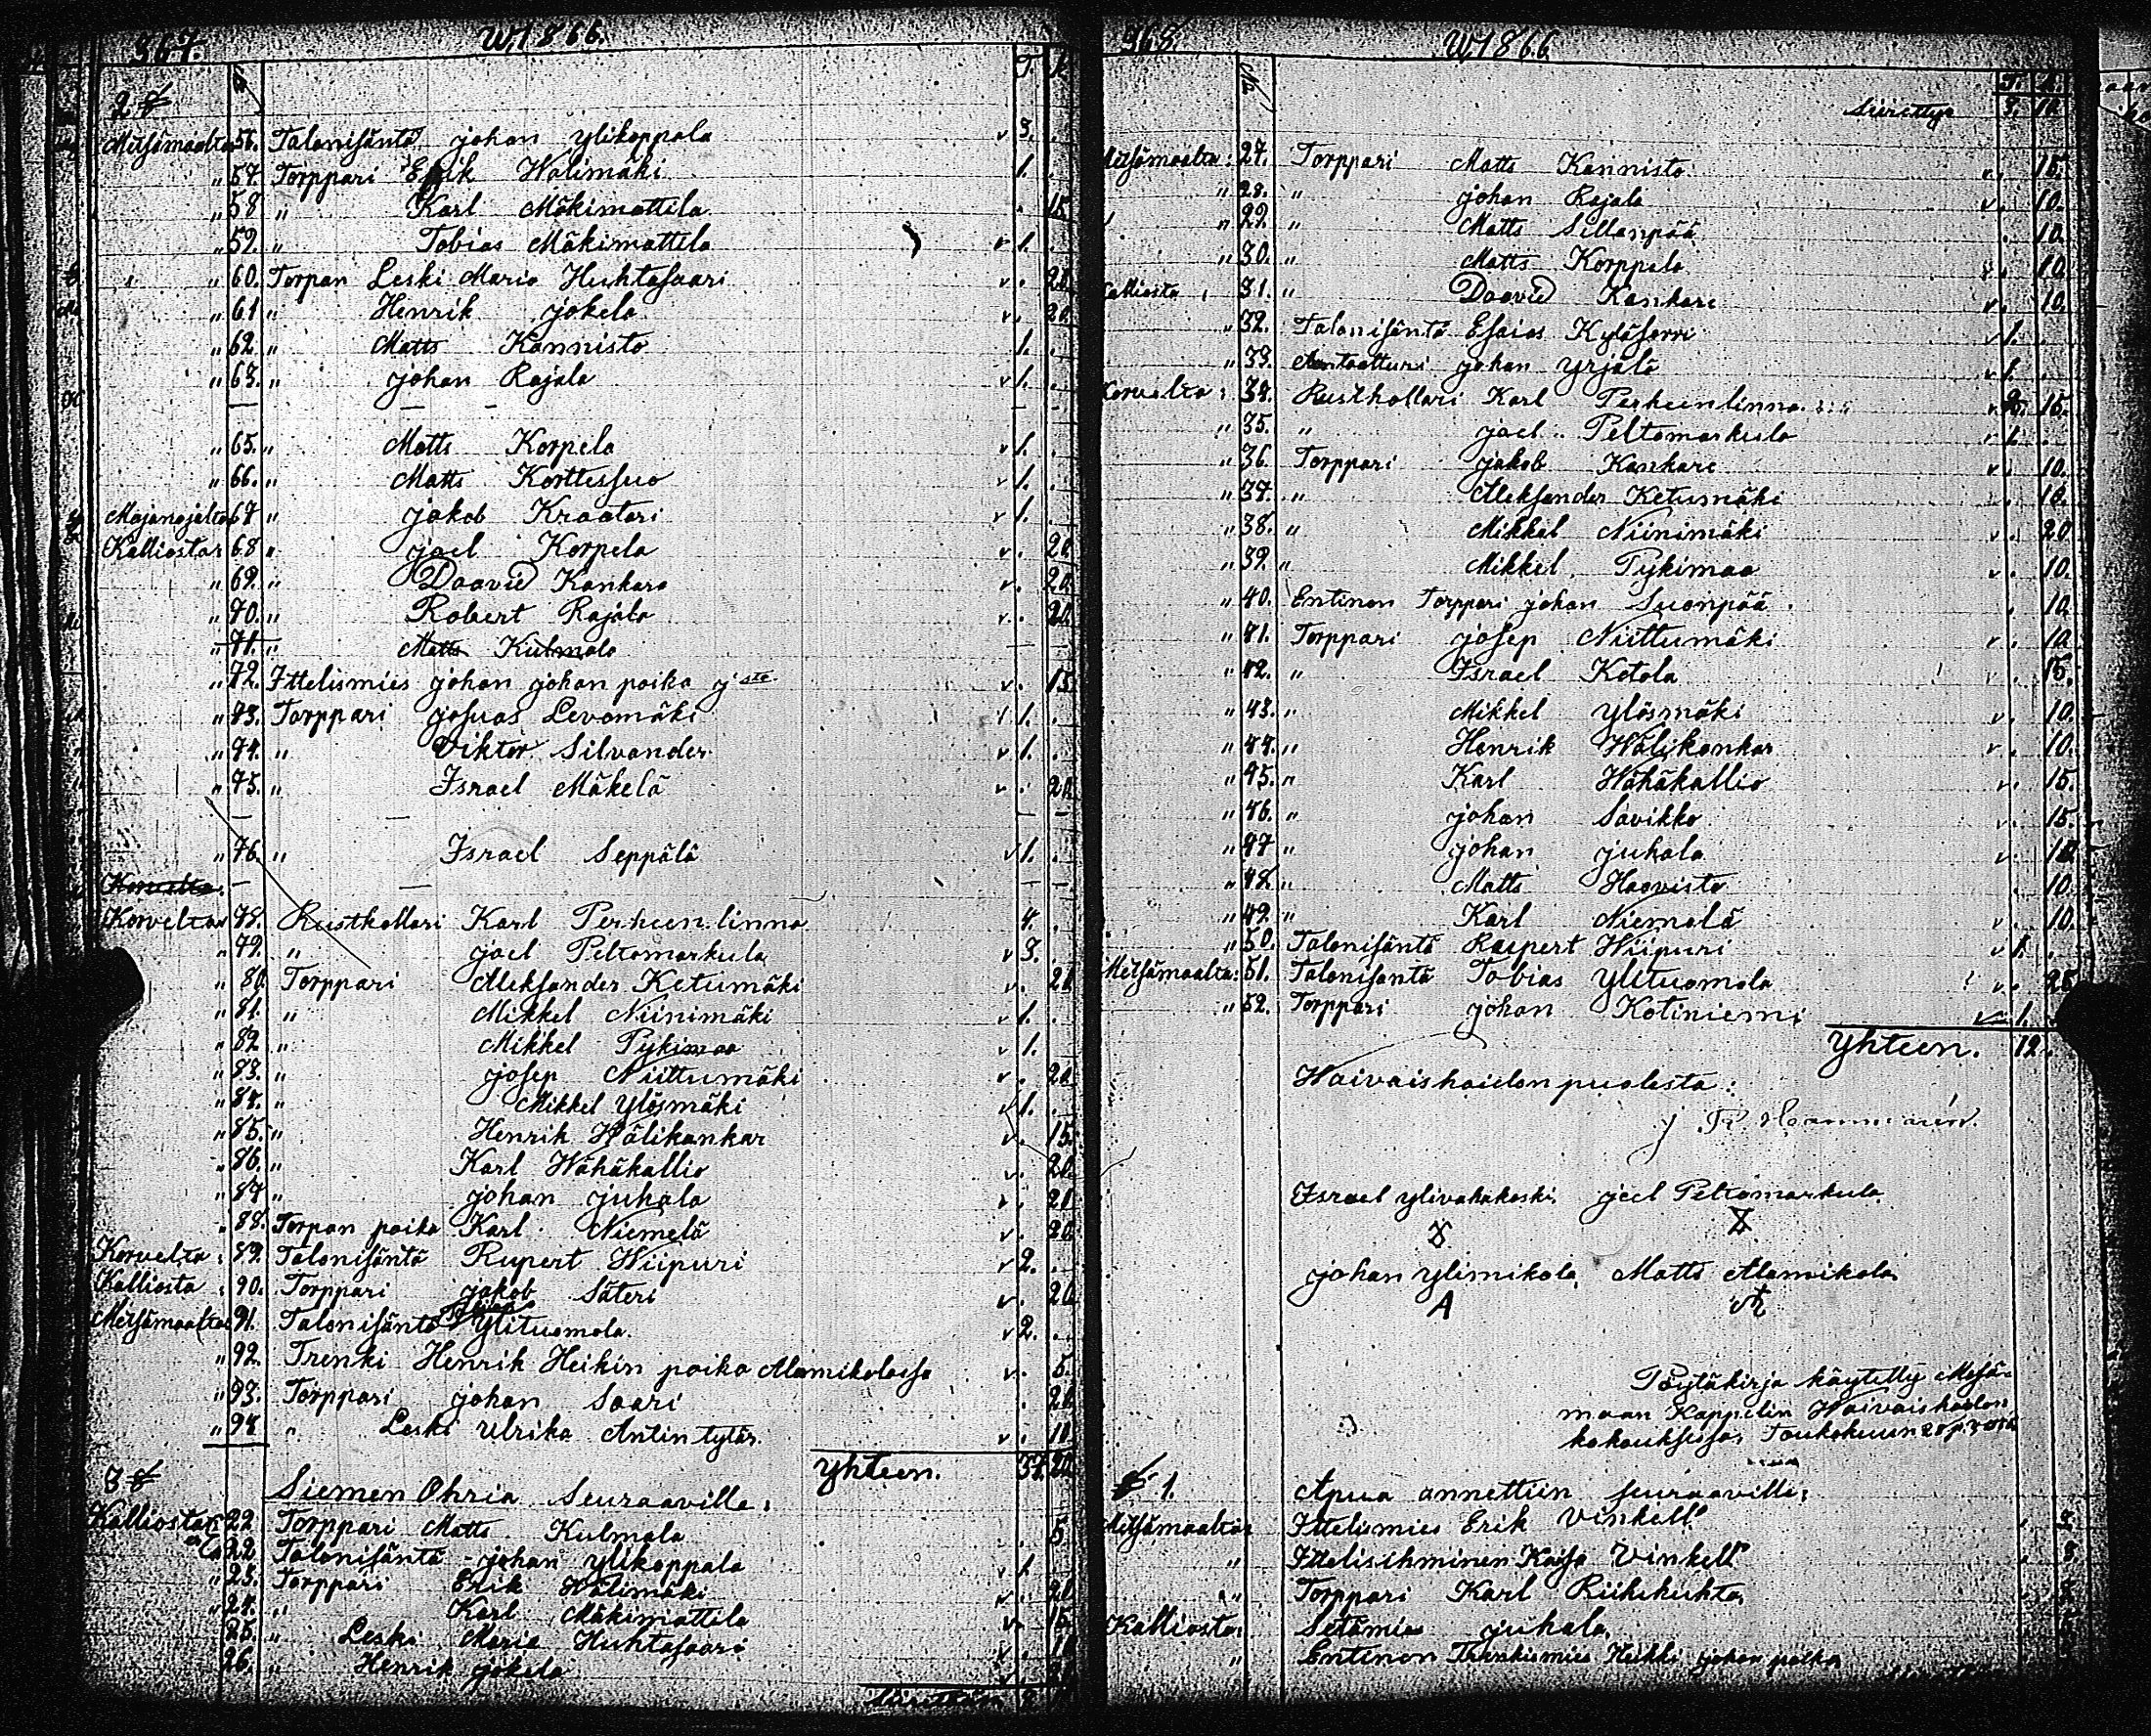 367. W, 1866.
T. k.
2 §
Metsämaalta 56. Talonisäntä johan ylikoppala v 3. .
" 57. Torppari Erik Wälimäki 1. .
" 58 " Karl Mäkimattila . 15
" 59. " Tobias Mäkimattila v 1. .
" 60. Torpan Leski Maria Huhtasaari v. 20
" 61 " Henrik jokela v. 20
" 62. " Matts Kannisto 1. .
" 63. " johan Rajala v 1. .
— — — — —
" 65. " Matts Korpela v 1. .
" 66. " Matts Korttessuo v 1. .
Majanojalta 67 " jakob Kraatari v 1. .
Kalliosta: 68 " joel Korpela v. 20
" 69. " Daavid Kankare v. 20.
" 70. " Robert Rajala v. 20
" 71. " Matts Kulmala — —
" 72. Ittelismies johan johan poika v. 15
" 73. Torppari josuas Levomäki v 1. .
" 74. " Viktor Silvander v 1. .
" 75. " Israel Mäkelä v. 20
— — — —
" 76. " Israel Seppälä v 1. .
Korvelta. — — — —
Korvelta 78. Rusthollari Karl Perheenlinna 4. .
" 79. " joel Peltomarkula v 3. .
" 80. Torppari Aleksander Ketumäki v. 20
" 81. " Mikkel Niinimäki v 1. .
" 82. " Mikkel Pykimaa v 1. .
" 83. " josep Niittumäki v. 20
" 84. " Mikkel Ylösmäki v 1. .
" 85. " Henrik Wälikankar v. 15
" 86. " Karl Wähäkallio v. 20
" 87 " johan juhala v. 20
" 88. Torpan poika Karl Niemelä v. 20
Korvelta: 89. Talonisäntä Rupert Wiipuri v 2. .
Kalliosta: 90. Torppari jakob Säteri v. 20
Metsämaalta 91. Talonisäntä Ylituomola. v 2. .
" 92. Trenki Henrik Heikin poika Alamikolassa v. 5.
" 93. Torppari johan Saari . 20
" 94 " Leski Ulrika Antin tytär. v. 10
Yhteen.
3 §
Siemen Ohria Seuraaville:
Kalliosta 22 Torppari Matts Kulmala . 5
22. Talonisäntä johan ylikoppala v 1
" 23. Torppari Erik Wälimäki v. 20
" 24. " Karl Mäkimattila v. 15
25. " Leski Maria Huhtasaari v. 10
26. " Henrik jokela v 20
Siiretään
368 W, 1866
No T. k.
Siirettyä 3. 10.
Metsämaalta: 27. Torppari Matts Kannisto v. 15.
" 28. " johan Rajala v. 10.
" 29. " Matts Sillanpää . 10.
" 30. " Matts Korppela v. 10.
Kalliosta: 31. " Daavid Kankare v. 10.
" 32. Talonisäntä Esaias Kyläsorri v 1. .
" 33. johan Yrjälä v 1. .
Korvelta: 34. Rusthollari Karl Perheenlinna. v 15.
" 35. " joel Peltomarkula v 1. .
" 36. Torppari jakob Kankare v. 10.
" 37. " Aleksander Ketumäki . 10.
" 38. " Mikkel Niinimäki v. 20
" 39. " Mikkel Pykimaa v. 10.
" 40. Entinen Torppari johan Suonpää . 10.
" 41. Torppari josep Niittumäki v. 10
" 42. " Israel Ketola . 15.
" 43. " Mikkel Ylösmäki v. 10.
" 44. " Henrik Wälikankar v. 10.
" 45. " Karl Wähäkallio v. 15.
" 46. " johan Savikko v. 15.
" 47 " johan juhala v. 10
" 48. " Matts Haavisto . 10.
" 49. " Karl Niemelä v. 10.
" 50. Talonisäntä Rupert Wiipuri v 1. .
Metsämaalta: 51. Talonisäntä Tobias Ylituomola v. 25
" 52. Torppari johan Kotiniemi v 1. .
Yhteen. 12.
Waivaishoidon puolesta:
Israel ylivahakoski joel Peltomarkula
johan ylimikola, Matts Alamikola
A
Pöytäkirja käytetty Mesä-
maan Kappelin Waivaishoidon
kokouksessa, Toukokuun 20 p:
§ 1.
Apua annettiin seuraaville:
Metsämaalta: Ittelismies Erik Vinkell
" Ittelisihminen Kaisa Vinkell
" Torppari Karl Riihihuhta
Kalliosta: Setämies juhala,
" Entinen Heikki johan poika